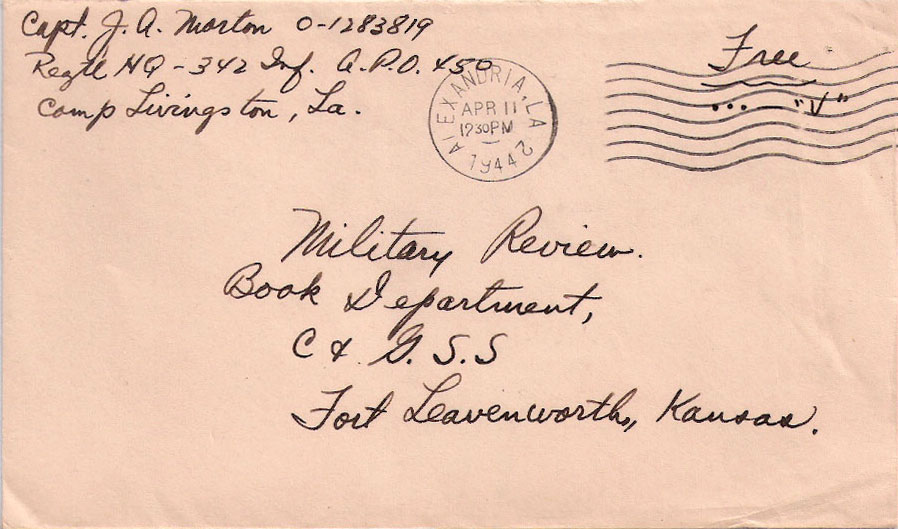 Capt. J. A. Morton O-1283819
Regtl HQ - 342 Inf. A.P.O. 450
Camp Livingston, La.
ALEXANDRIA, LA
APR 11
1230PM
1944
2
Free
... — "V"
Military Review.
Book Department,
C & G. S. S
Fort Leavenworth, Kansas.